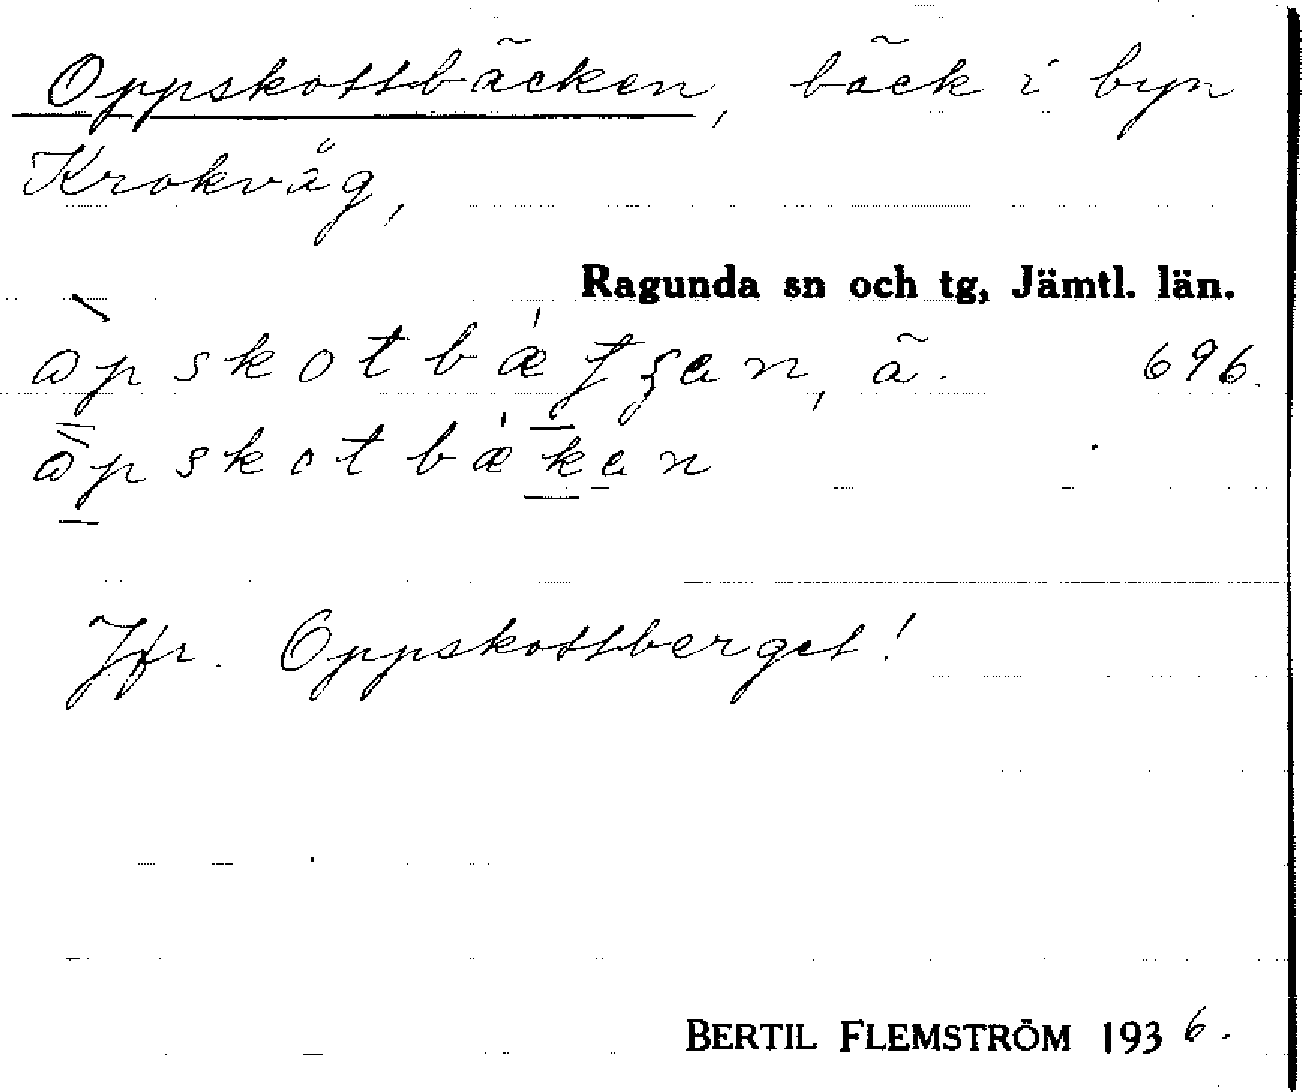 Oppskottbäcken, bäck i byn
Krokvåg,
Ragunda sn och tg, Jämtl. län.
åpskotbætʂan, ä. 696.
åpskotbækan
Jfr. Oppskottberget!
BERTIL FLEMSTRÖM 1936.